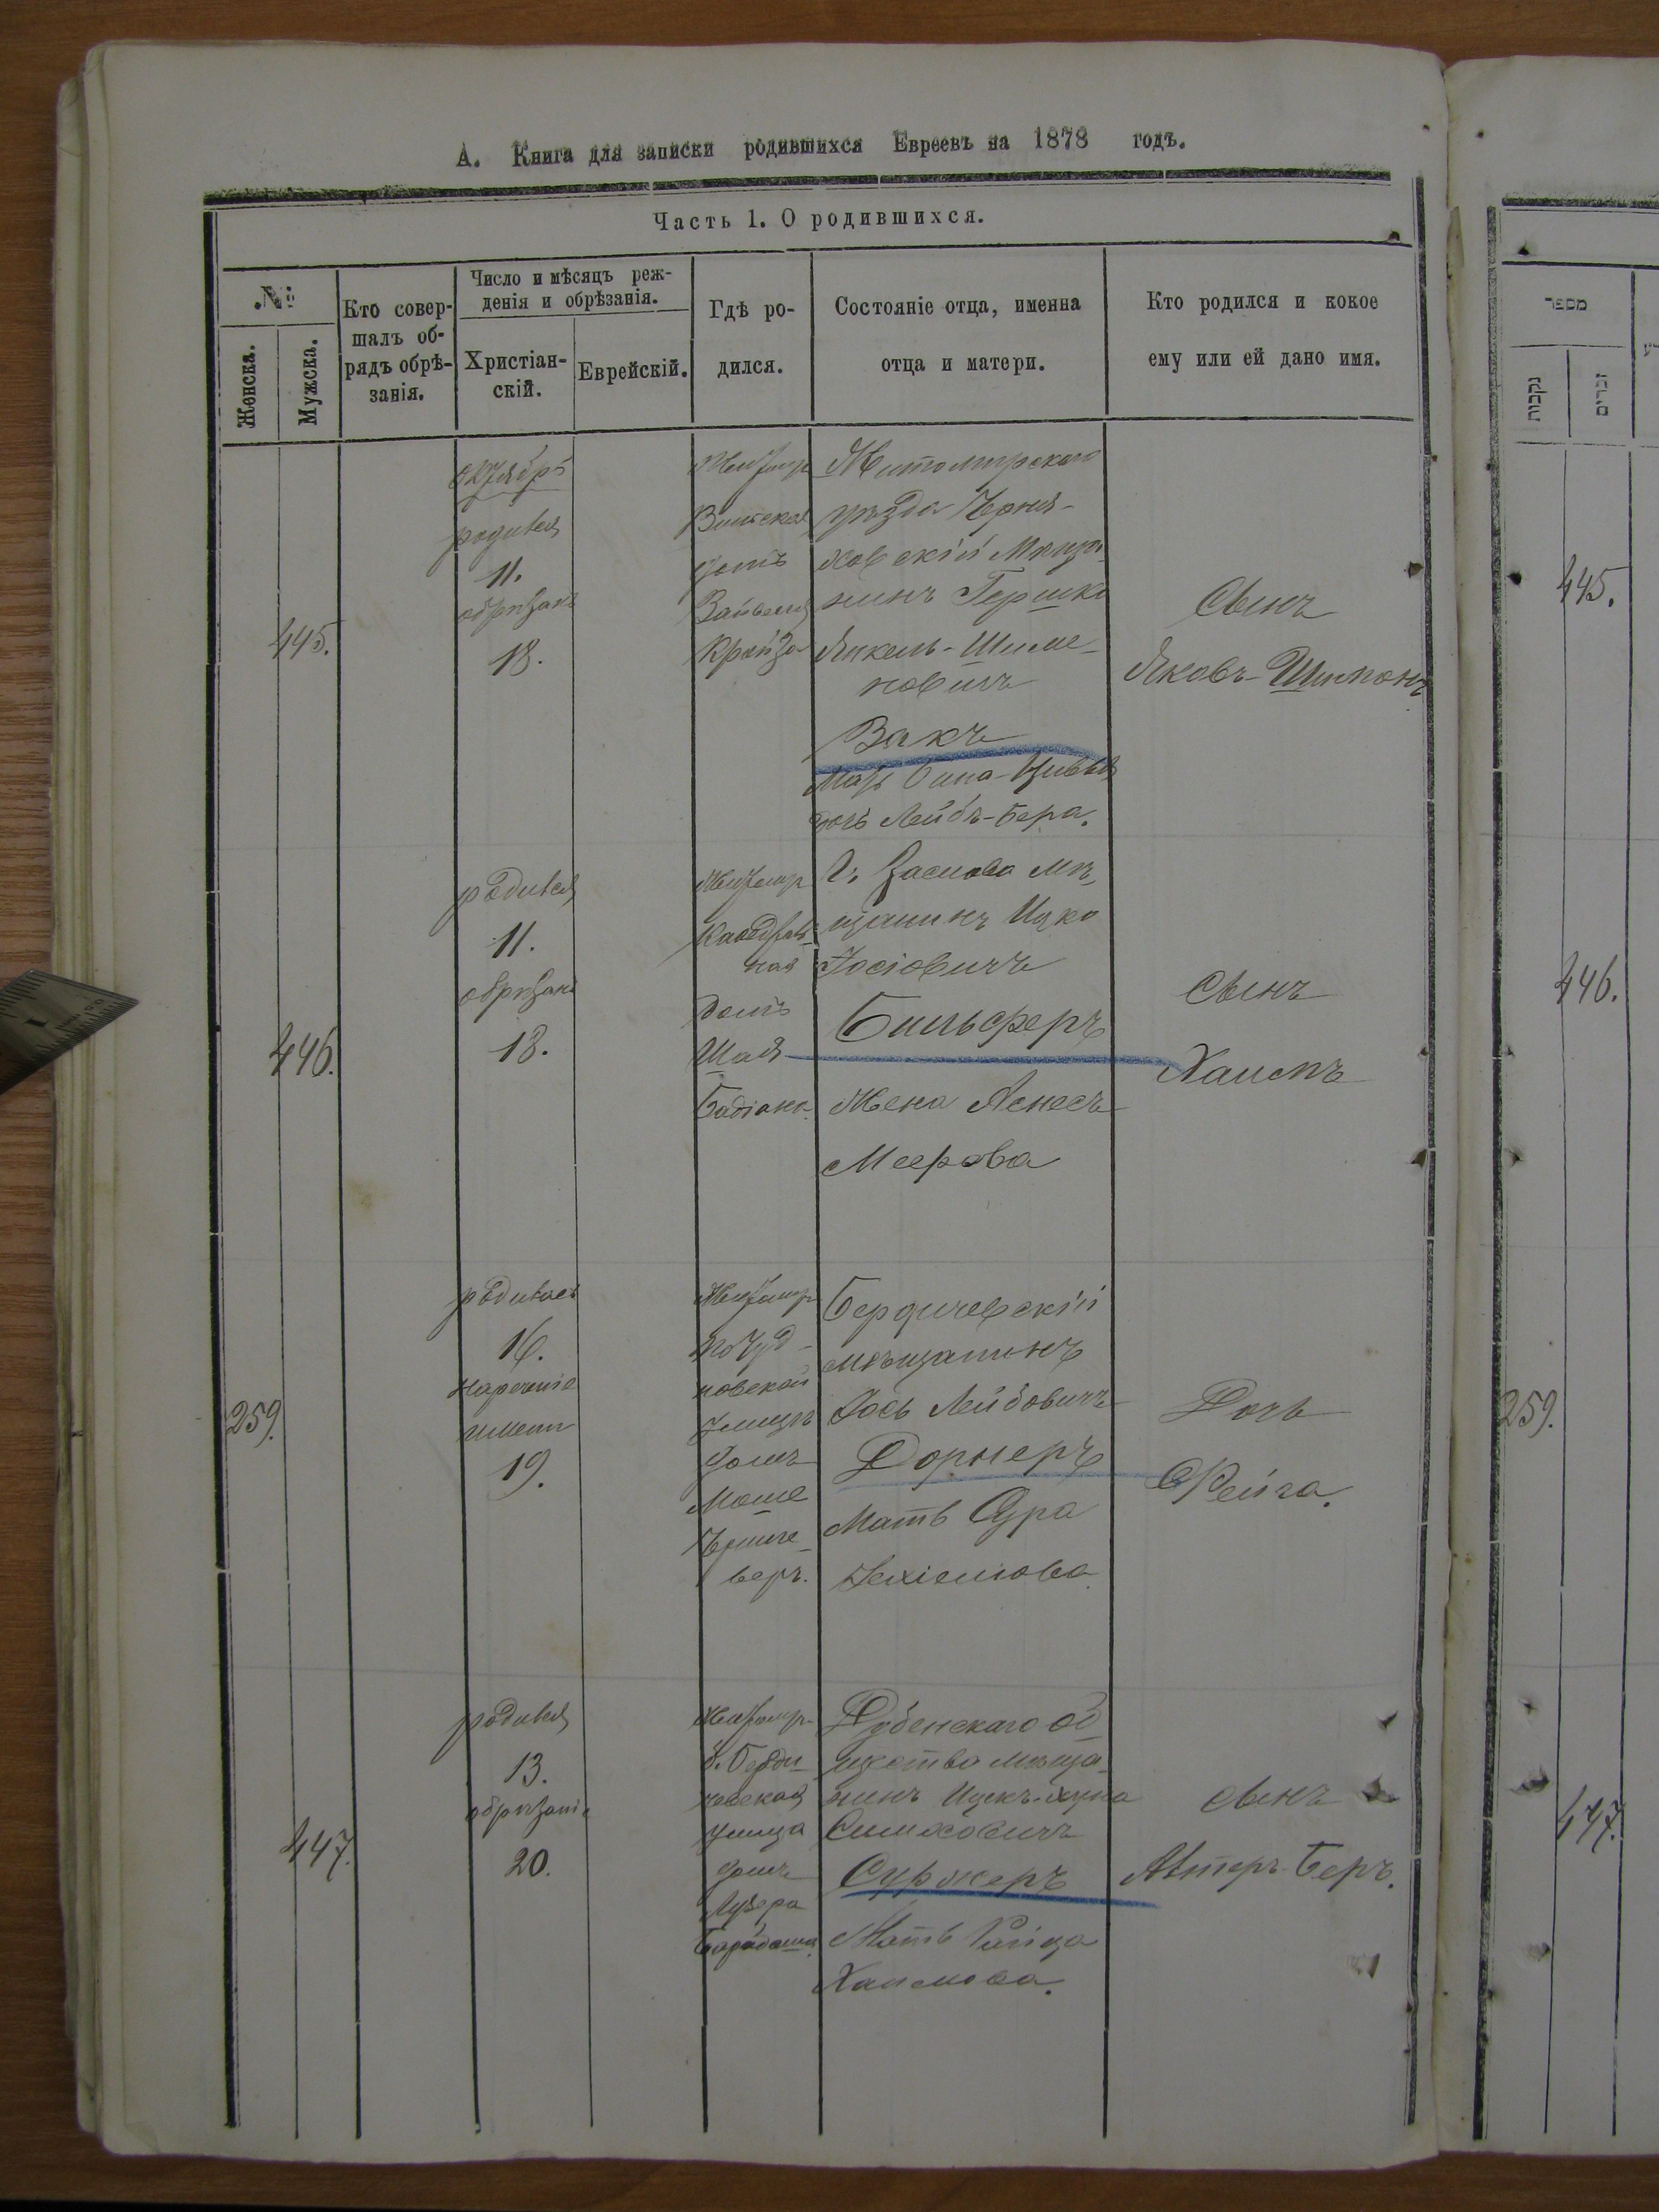 А. Книга для записки родившихся Евреевъ на 1878 годъ.
Часть 1. О родившихся.
№
Женска.
Мужска.
Кто совер-
шалъ об-
рядъ обрѣ-
занія.
Число и мѣсяцъ реж-
денія и обрѣзанія.
Христіан-
скій.
Еврейскій.
Гдѣ ро-
дился.
Состояніе отца, именна
отца и матери.
Кто родился и кокое
ему или ей дано имя.
445.
октябрь
родился
11.
обрѣзанъ
18.
Житомир
домъ
Житомирскаго
уѣзда Черня-
ховскій Мѣща-
нинъ Гершко
Янкель-Шиме-
новичъ
Вакъ
Мать Сима-Цивья
дочь Лейбъ-Бера.
Сынъ
Яковъ-Шимонъ
446.
родился
11.
обрѣзанъ
18.
Житомир
Каѳедраль-
ная
домъ
Шая
Г. Заслава Мѣ-
щанинъ Ицко
Іосіовичъ
Бильферъ
Жена Аснесъ
Меерова
Сынъ
Хаимъ
259.
родилась
16.
нареченіе
имени
19.
Житомир
по Чуд-
новской
улицѣ
домъ
Моше
Бердичевскій
мѣщанинъ
Іось Лейбовичъ
Дорнеръ
Мать Сура
Іехіелова
Дочь
Фейга.
447.
родился
13.
обрѣзаніе
20.
Житомир.
б. Берди-
чевская
улица
домъ
Лузера
Дубенскаго об-
щество мѣща-
нинъ Ицекъ-Хуна
Симховичъ
Мать Раица
Хаимова.
сынъ
Алтеръ-Беръ.
מספר
נקבות
זכרים
445.
446.
259.
447.